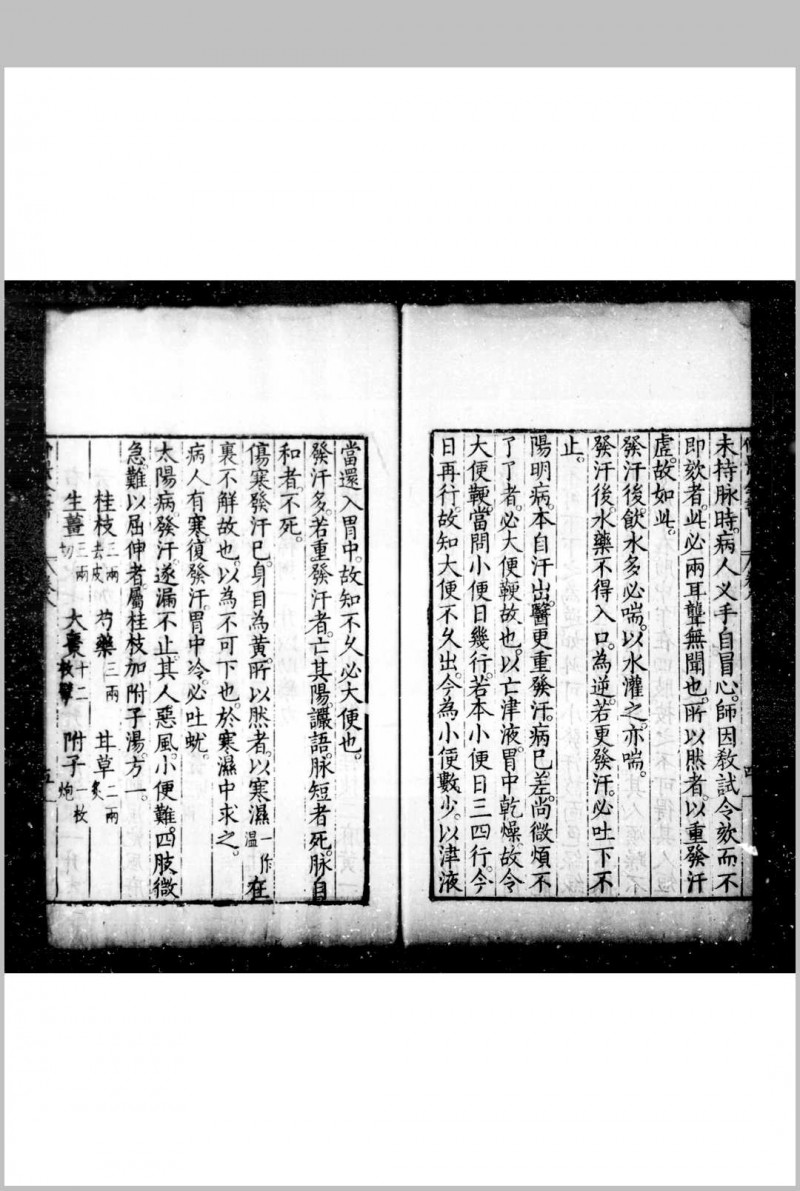 未持脉時。病人义手自冒心。師因敎試令欬而不
即欬者。此必兩耳聾無聞也。所以然者。以重發汗
虛。故如此。
發汗後。飲水多必喘。以水灌之。亦喘。
發汗後。水藥不得入口。爲逆。若更發汗。必吐下不
止。
陽明病。本自汗出。醫更重發汗。病已差。尚微煩不
了了者。必大便鞕故也。以亡津液。胃中乾燥。故令
大便鞕。當問小便日幾行。若本小便日三四行。今
日再行。故知大便不久出。今爲小便數少。以津液
當還入胃中。故知不久必大便也。
發汗多。若重發汗者。亡其陽。讝語。脉短者死。脉自
和者。不死。
傷寒發汗已。身目為黃。所以然者。以寒濕一作溫在
裏不解故也。以為不可下也。於寒濕中求之。
病人有寒。復發汗。胃中冷。必吐蚘。
太陽病發汗。遂漏不止。其人惡風。小便難。四肢微
急。難以屈伸者。屬桂枝加附子湯。方一。
桂枝三兩去皮 芍藥三兩 甘草二兩炙
生薑三兩切 大棗十二枚擘 附子一枚炮